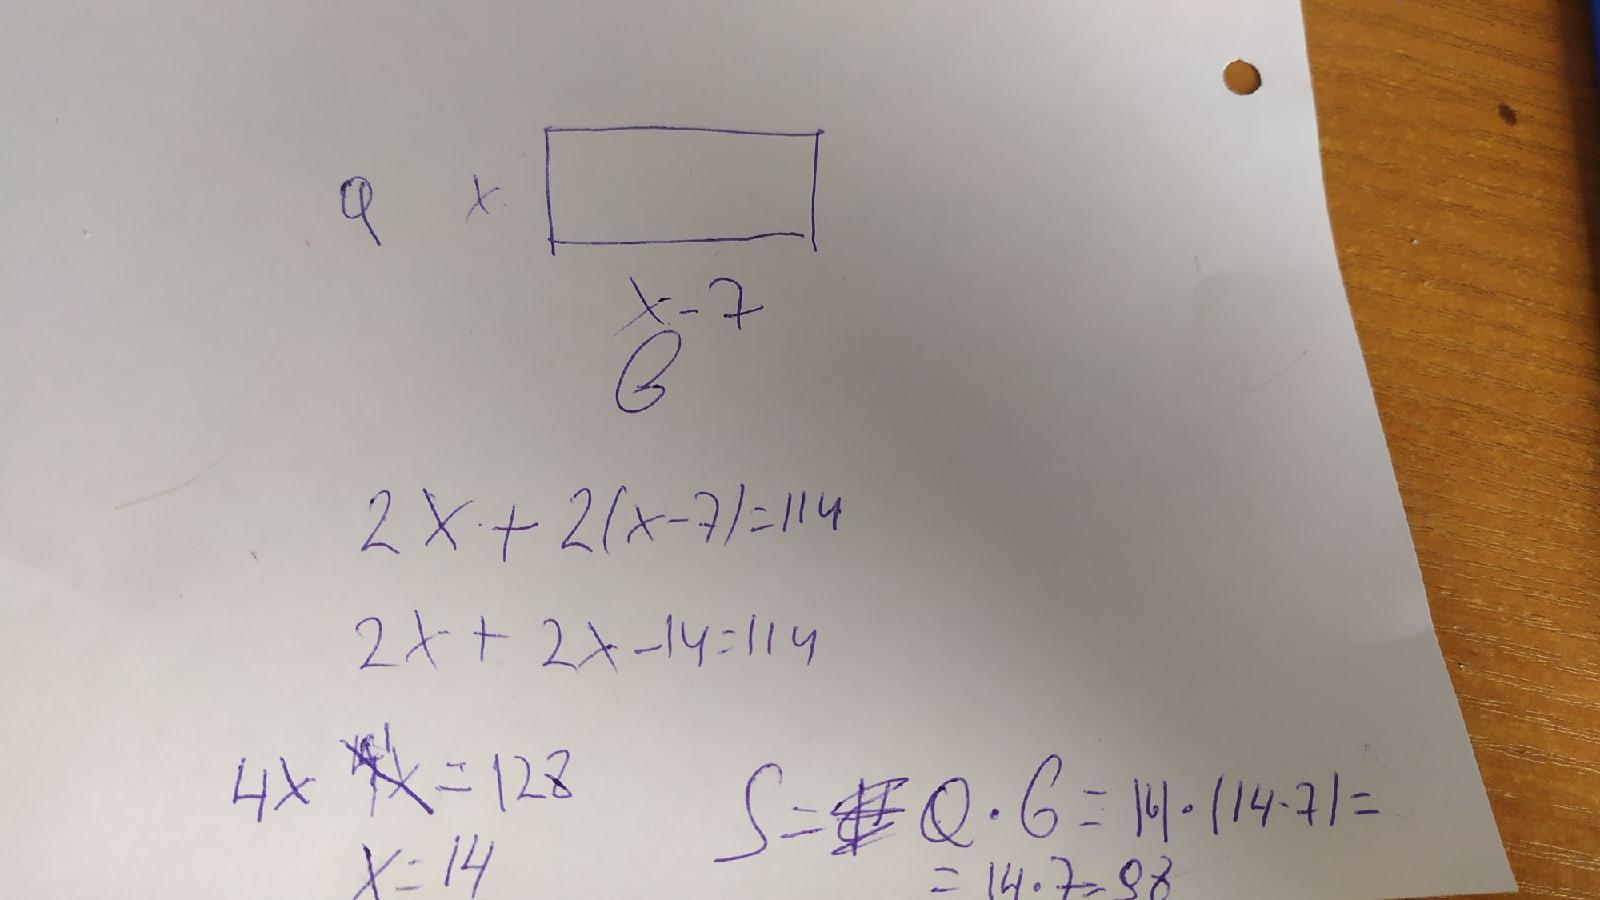 a x
x-7
b
2x + 2(x-7)=114
2x + 2x-14=114
4x = 128
x=14
S= a · b = 14 · (14-7)=
= 14·7=98